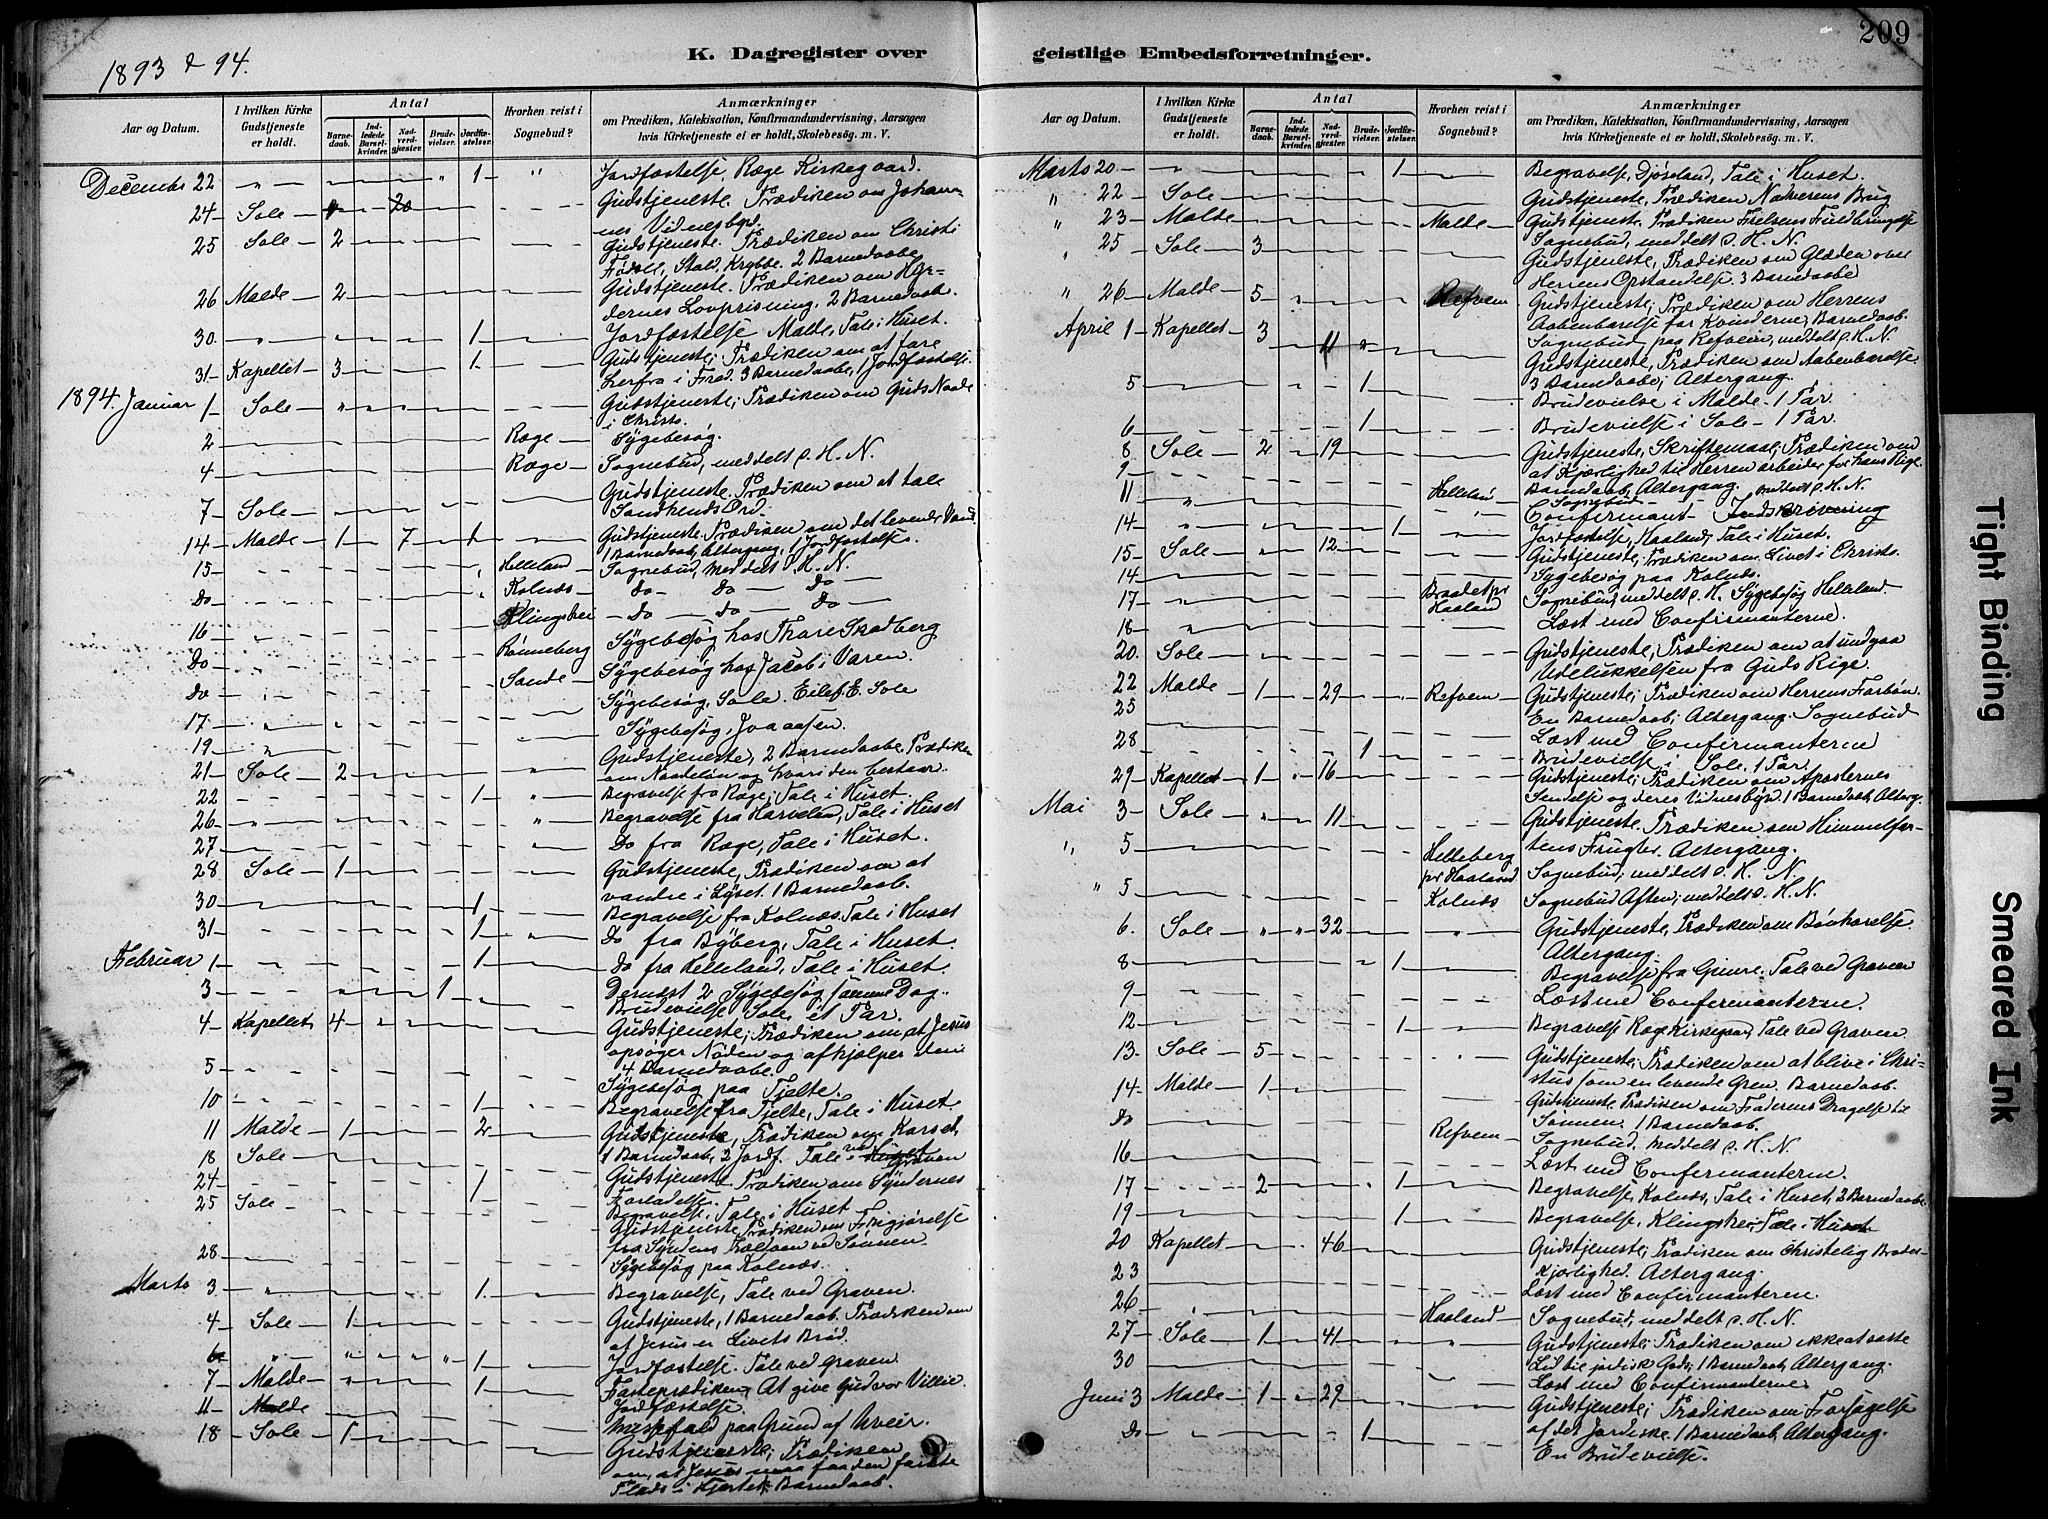 209
1893 & 94.
K. Dagregister over
geistlige Embedsforretninger.
Aar og Datum.
I hvilken Kirke Gudstjeneste er holdt.
Antal
Barnedaab.
Indledede Barselkvinder.
Nadverdgjæster.
Brudevielser.
Jordfæstelser.
Hvorhen reist i Sognebud?
Anmærkninger
om Prædiken, Katekisation, Konfirmandundervisning, Aarsagen
hvis Kirketjeneste ei er holdt, Skolebesög. m. V.
December 22 " 1 " Jordfæstelse, Ræge Kirkegaard.
24 Sole 20 Gudstjeneste. Prædiken om Johan-
nes Vidnesbyrd.
25 Sole 2 Gudstjeneste. Prædiken om Christi
Fødsel, Stald, Krybbe. 2 Barnedaabe
26 Malde 2 Gudstjeneste. Prædiken om Hyr-
dernes Lovprisning, 2 Barnedaab.
30 " 1 Jordfæstelse Malde, Tale i Huset.
31 Kapellet 3 1 Gudstjeneste; Prædiken om at fare
herfra i Fred. 3 Barnedaabe, 1 Jordfæstelse.
1894. Januar 1 Sole Gudstjeneste; Prædiken om Guds Naade
i Christo.
2 Ræge Sygebesøg.
4 Ræge Sognebud, meddelt d. H. N.
7 Sole Gudstjeneste. Prædiken om at tale
Sandheds Ord.
14 Malde 1 7 1 Gudstjeneste. Prædiken om det levende Vand
1 Barnedaab, Altergang, 1 Jordfæstelse.
15 Helleland Sognebud, meddelt d. H. N.
Do Kolnæs Do Do Do
16 Klingshei Do Do Do
Do Rønneberg Sygebesøg hos Thore Skadberg
Do Sande Sygebesøg hos Jacob i Varen.
17 Sygebesøg, Sole. Eilef E. Sole
19 Sygebesøg, Joaasen.
21 Sole 2 Gudstjeneste, 2 Barnedaabe. Prædiken
om Naadeløn og hvori den bestaar.
22 1 Begravelse fra Ræge; Tale i Huset.
26 Begravelse fra Harveland, Tale i Huset
27 Do fra Ræge, Tale i Huset.
28 Sole 1 Gudstjeneste, Prædiken om at
vandre i Lyset. 1 Barnedaab.
30 1 Begravelse fra Kolnæs. Tale i Huset
31 1 Do fra Byberg, Tale i Huset.
Februar 1 1 Do fra Helleland, Tale i Huset.
3 1 Dernæst 2 Sygebesøg samme Dag.
Brudevielse Sole et Par.
4 Kapellet 4 Gudstjeneste; Prædiken om at Jesus
opsøger Nøden og afhjælper den
4 Barnedaabe.
5 Sygebesøg paa Tjelte.
10 1 Begravelse fra Tjelte, Tale i Huset.
11 Malde 1 2 Gudstjeneste, Prædiken om Korset,
1 Barnedaab, 2 Jordf. Tale ved Graven
18 Sole Gudstjeneste. Prædiken om Syndernes
Forladelse.
24 1 Begravelse, Tale i Huset
25 Sole Gudstjeneste Prædiken om Frigjørelse
fra Syndens Trældom ved Sønnen
28 Sygebesøg paa Kolnæs.
Marts 3 1 Begravelse, Tale ved Graven.
4 Sole 1 Gudstjeneste, 1 Barnedaab. Prædiken om
at Jesus er Livets Brød.
6 1 Jordfæstelse. Tale ved Graven.
7 Malde 1 Fasteprædiken, At give Gud vor Villie.
Jordfæstelse.
11 Malde Messefald paa Grund af Uveir.
18 Sole 1 Gudstjeneste; Prædiken
om, at Jesus maa faa den første
Plads i Hjertet; Barnedaab.
Aar og Datum.
I hvilken Kirke Gudstjeneste er holdt.
Antal
Barnedaab.
Indledede Barselkvinder.
Nadverdgjæster.
Brudevielser.
Jordfæstelser.
Hvorhen reist i Sognebud?
Anmærkninger
om Prædiken, Katekisation, Konfirmandundervisning, Aarsagen
hvis Kirketjeneste ei er holdt, Skolebesög. m. V.
Marts 20 " 1 Begravelse, Djøseland, Tale i Huset.
" 22 Sole Gudstjeneste, Prædiken Nadverens Brug
" 23 Malde Malde Gudstjeneste Prædiken Frelsens Fuldbringelse
Sognebud, meddelt d. H. N.
" 25 Sole 3 Gudstjeneste, Prædiken om Glæden over
Herrens Opstandelse. 3 Barnedaabe
" 26 Malde 5 Refvem Gudstjeneste; Prædiken om Herrens
Aabenbarelse for Kvinderne, Barnedaab.
Sognebud paa Refveim, meddelt d. H. N.
April 1 Kapellet 3 11 Gudstjeneste, Prædiken om Aabenbarelse
3 Barnedaabe, Altergang.
5 1 Brudevielse i Malde 1 Par.
6 1 Brudevielse i Sole 1 Par.
8 Sole 2 19 Gudstjeneste, Skriftemaal; Prædiken om
at Kjærlighed til Herren arbeider for hans Rige.
9 Barnedaab, Altergang.
11 Helleland Sognebud meddelt d. H. N.
Confirmant Indskrivning
14 1 Jordfæstelse, Haaland, Tale i Huset.
15 Sole 12 Gudstjeneste, Prædiken om Livet i Christo.
14 Sygebesøg paa Kolnæs.
17 Braadet pr Haaland Sognebud meddelt d. H. Sygebesøg Helleland.
18 Læst med Confirmanterne.
20 Sole Gudstjeneste, Prædiken om at undgaa
Udelukkelsen fra Guds Rige.
22 Malde 1 29 Refvem Gudstjeneste; Prædiken om Herrens Forbøn.
En Barnedaab; Altergang. Sognebud
25 Læst med Confirmanterne
28 1 Brudevielse i Sole. 1 Par
29 Kapellet 1 16 Gudstjeneste; Prædiken om Apostlernes
Sendelse og deres Vidnesbyrd 1 Barnedaab, Alterg.
Mai 3 Sole 11 Gudstjeneste. Prædiken om Himmelfar-
tens Frugter. Altergang.
" 5 Helleberg pr Haaland Sognebud, meddelt d. H. N.
" 5 Kolnæs Sognebud Aften; meddelt d. H. N.
6 Sole 32 Gudstjeneste, Prædiken om Bønhørelse.
Altergang.
8 1 Begravelse fra Gimre. Tale ved Graven
9 Læst med Confirmanterne.
12 1 Begravelse Ræge Kirkegaard, Tale ved Graven.
13 Sole 5 Gudstjeneste; Prædiken om at blive i Chri-
stus som en levende Gren. Barnedaab.
14 Malde 1 Gudstjeneste Prædiken om Faderens Dragelse til
Sønnen. 1 Barnedaab.
Do Refvem Sognebud. meddelt d. H. N.
16 Læst med Confirmanterne.
17 2 1 Begravelse, Kolnæs, Tale i Huset, 2 Barnedaabe.
19 1 Begravelse, Klingshei, Tale i Huset
20 Kapellet 46 Gudstjeneste; Prædiken om Christelig Broder-
kjærlighed. Altergang.
23 Læst med Confirmanterne.
26 Haaland Sognebud, meddelt d. H. N.
27 Sole 1 41 Gudstjeneste; Prædiken om ikke at sætte
Lid til jordisk Gods; 1 Barnedaab, Altergang.
30 Læst med Confirmanterne
Juni 3 Malde 1 29 Gudstjeneste; Prædiken om Forsagelse
af det Jordiske. 1 Barnedaab, Altergang.
Do 1 En Brudevielse.
Tight Binding
Smeared Ink